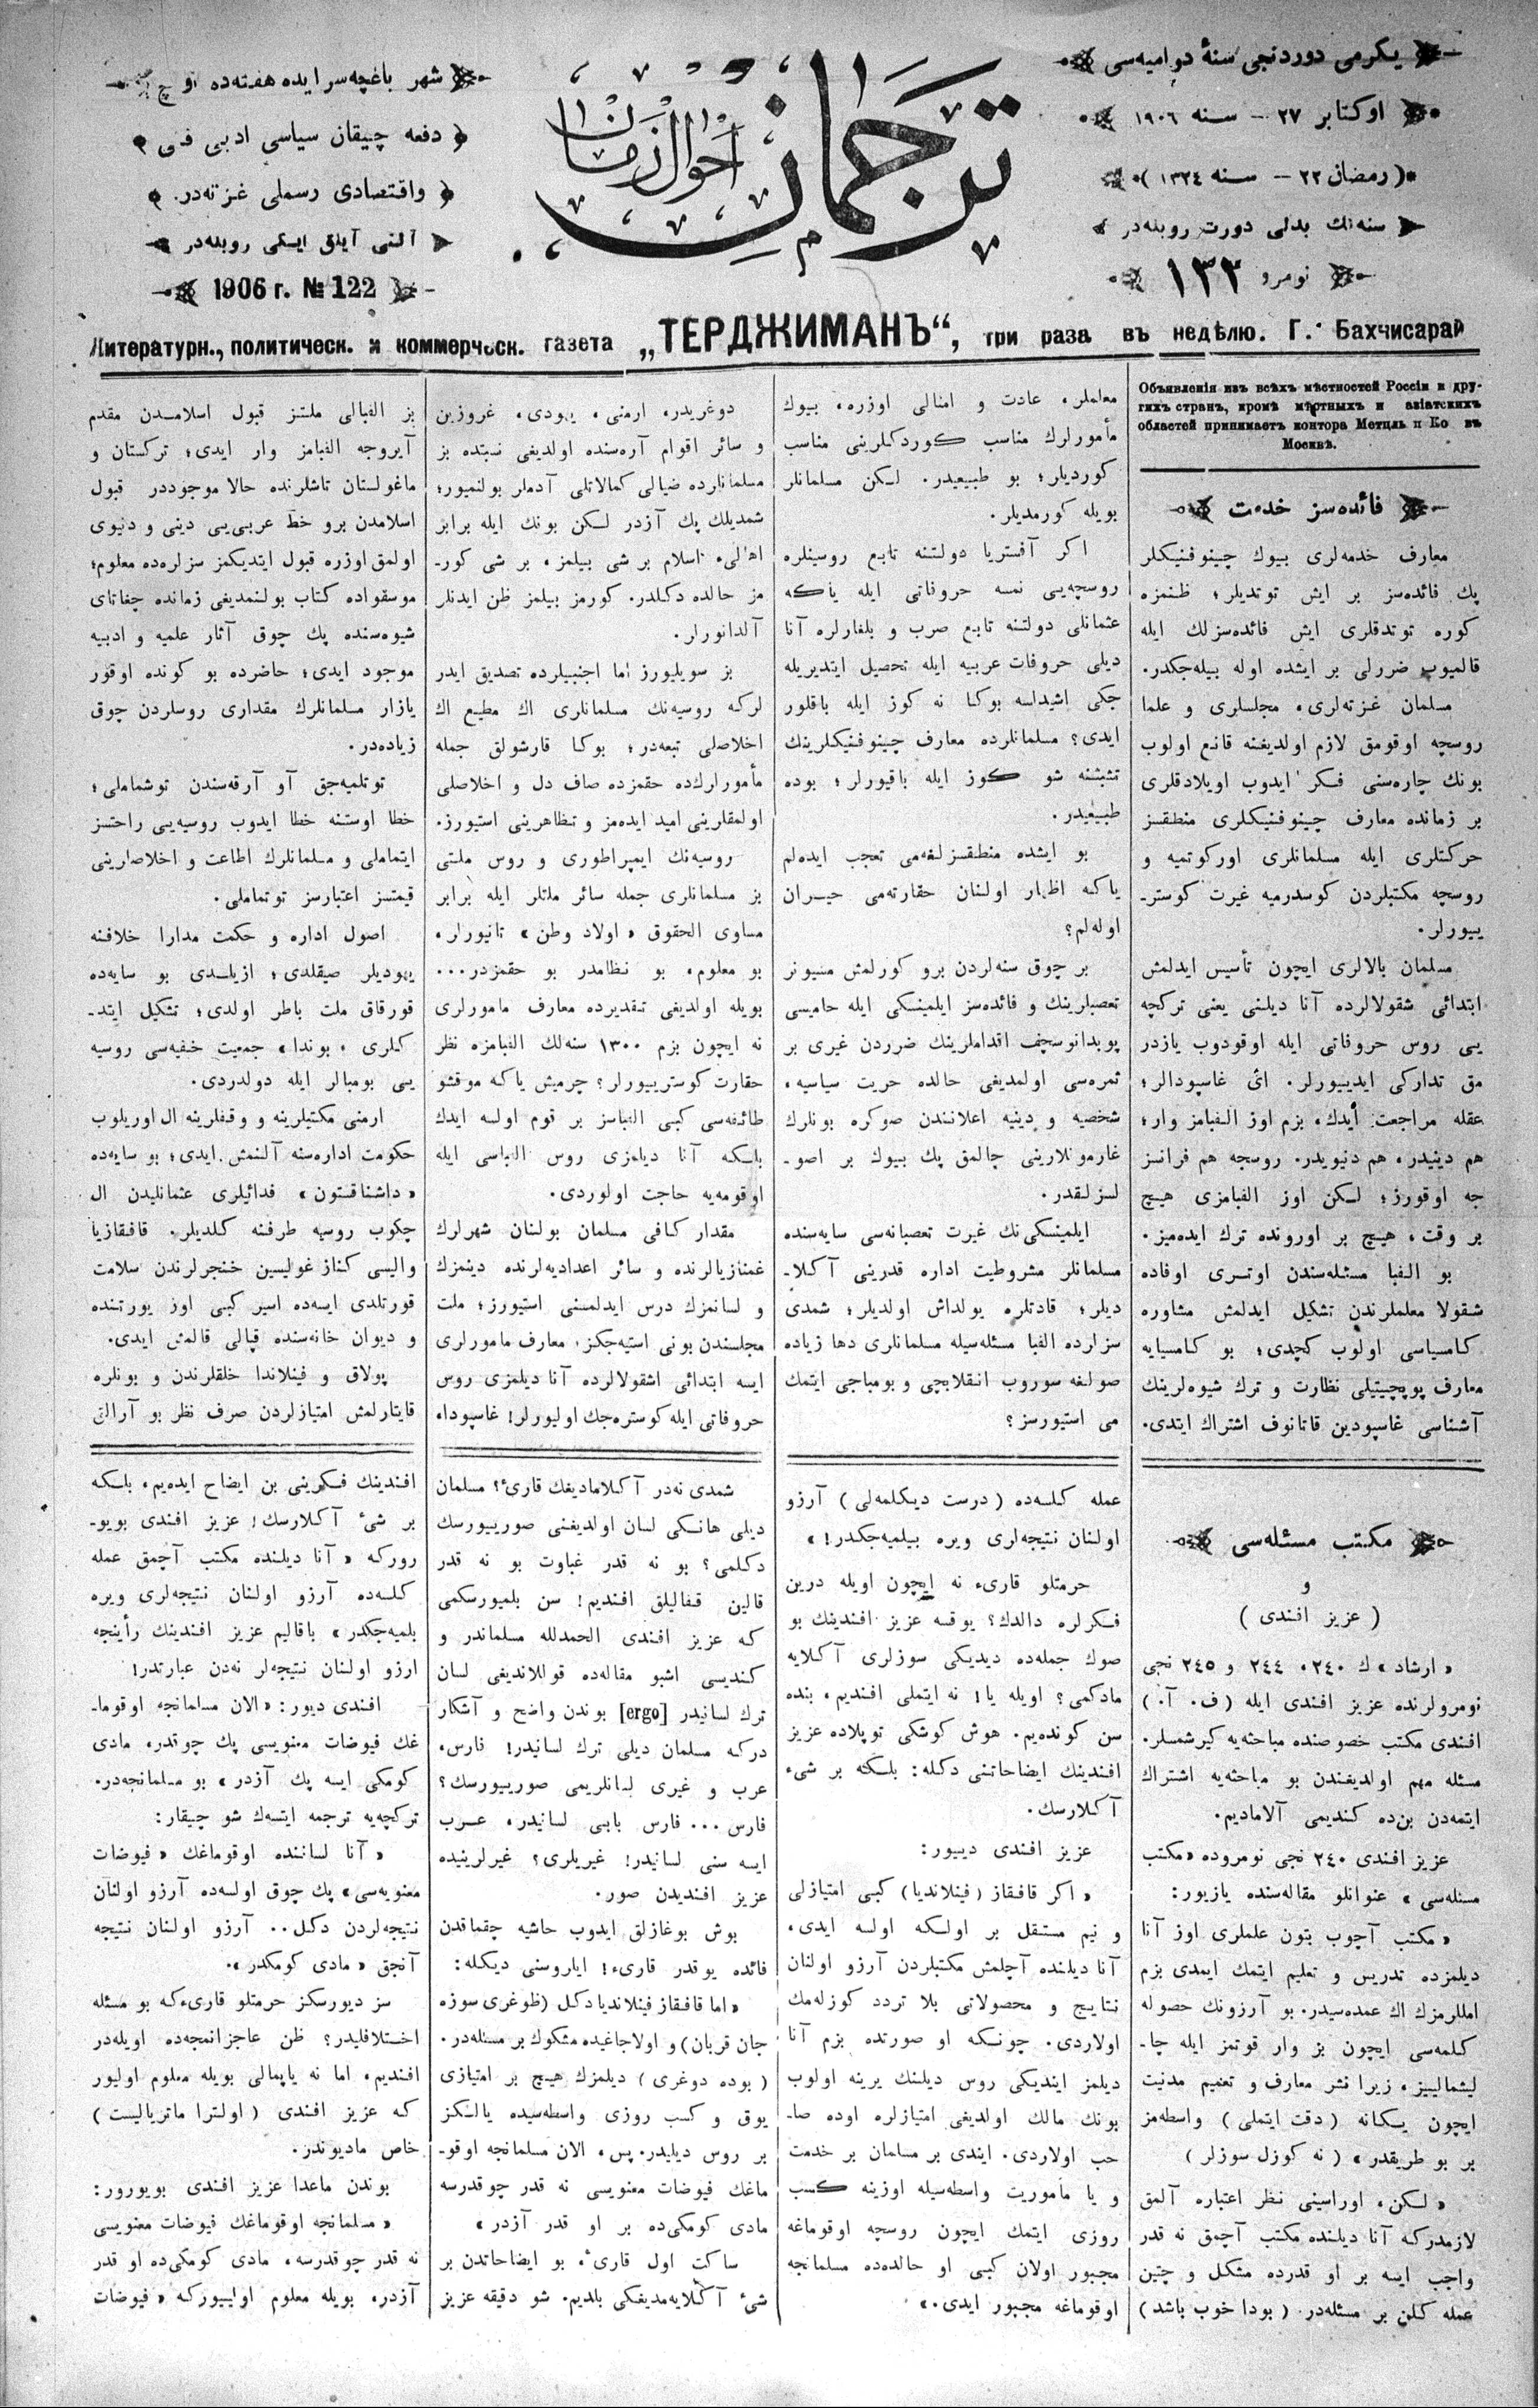 یكرمی دوردنجی سنۀ دوامیه‌سی
اوكتابر ۲۷ — سنه ۱۹۰۶
(رمضان ۲۲ — سنه ۱۳۲٤)
سنه‌لك بدلی دورت روبله‌در
نومرو ۱۲۲
ترجمان
احوال زمان
شهر باغچه‌سرایده هفته‌ده اوچ
دفعه چیقان سیاسی ادبی فنی
واقتصادی رسملی غزته‌در.
آلتی آیلق ایكی روبله‌در
1906 г. № 122
Литературн., политическ. и коммерческ. газета „ТЕРДЖИМАНЪ“, три раза въ недѣлю. Г. Бахчисарай
Объявленія изъ всѣхъ мѣстностей Россіи и дру-
гихъ странъ, кромѣ мѣстныхъ и азіатскихъ
областей принимаетъ контора Метцль и Ко въ
Москвѣ.
فائده‌سز خدمت
معارف خدمه‌لری بیوك چینوفنیكلر
پك فائده‌سز بر ایش توتدیلر؛ ظنمزه
كوره توتدقلری ایش فائده‌سزلك ایله
قالمیوب ضررلی بر ایشده اوله بیله‌جكدر.
مسلمان غزته‌لری، مجلسلری و علما
روسچه اوقومق لازم اولدیغنه قانع اولوب
بونك چاره‌سنی فكر ایدوب اویلادقلری
بر زمانده معارف چینوفنیكلری منطقسز
حركتلری ایله مسلمانلری اوركوتمیه و
روسچه مكتبلردن كوسدرمیه غیرت كوستر-
ییورلر.
مسلمان بالالری ایچون تأسیس ایدلمش
ابتدائی شقولالرده آنا دیلنی یعنی تركچه
یی روس حروفاتی ایله اوقودوب یازدر
مق تداركی ایدییورلر. ائ غاسپودالر؛
عقله مراجعت أیدك، بزم اوز الفبامز وار؛
هم دینیدر، هم دنیویدر. روسجه هم فرانسز
جه اوقورز؛ لكن اوز الفبامزی هیچ
بر وقت، هیچ بر اوروندہ ترك ایده‌میز.
بو الفبا مسئله‌سندن اوتری اوفاده
شقولا معلملرندن تشكیل ایدلمش مشاوره
كامسیاسی اولوب كچدی؛ بو كامسیایه
معارف پوپچیتیلی نظارت و ترك شیوه‌لرینك
آشناسی غاسپودین قاتانوف اشتراك ایتدی.
معلملر، عادت و امثالی اوزره، بیوك
مأمورلرك مناسب كوردكلرینی مناسب
كوردیلر؛ بو طبیعیدر. لكن مسلمانلر
بویله كورمدیلر.
اكر آفستریا دولتنه تابع روسینلره
روسچه‌یی نمسه حروفاتی ایله یاكه
عثمانلی دولتنه تابع صرب و بلغارلره آنا
دیلی حروفات عربیه ایله تحصیل ایتدیریله
جكی اشیدلسه بوكا نه كوز ایله باقلور
ایدی؟ مسلمانلرده معارف چینوفنیكلرینك
تشبثنه شو كوز ایله باقیورلر؛ بوده
طبیعیدر.
بو ایشده منطقسزلغه‌می تعجب ایده‌لم
یاكه اظهار اولنان حقارته‌می حیران
اوله‌لم؟
بر چوق سنه‌لردن برو كورلمش مسیونر
تعصبلرینك و فائده‌سز ایلمینسكی ایله حامیسی
پوبدانوسچف اقداملرینك ضرردن غیری بر
ثمره‌سی اولمدیغی حالده حریت سیاسیه،
شخصیه و دینیه اعلانندن صوكره بونلرك
غارمونلارینی چالمق پك بیوك بر اصو-
لسزلقدر.
ایلمینسكی‌نك غیرت تعصبانه‌سی سایه‌سنده
مسلمانلر مشروطیت اداره قدرینی آكلا-
دیلر؛ قادتلره یولداش اولدیلر؛ شمدی
سزلرده الفبا مسئله‌سیله مسلمانلری دها زیاده
صولغه سوروب انقلابچی و بومباجی ایتمك
می استیورسز؟
دوغریدر، ارمنی، یهودی، غروزین
و سائر اقوام آره‌سنده اولدیغی نسبتده بز
مسلمانلرده ضیالی كمالاتلی آدملر بولنمیور؛
شمدیلك پك آزدر لكن بونك ایله برابر
اهالیء اسلام بر شی بیلمز، بر شی كور-
مز حالده دكلدر. كورمز بیلمز ظن ایدنلر
آلدانورلر.
بز سویلیورز اما اجنبیلرده تصدیق ایدر
لركه روسیه‌نك مسلمانلری اك مطیع اك
اخلاصلی تبعه‌در؛ بوكا قارشولق جمله
مأمورلرك‌ده حقمزده صاف دل و اخلاصلی
اولمقارینی امید ایده‌مز و تظاهرینی استیورز.
روسیه‌نك ایمپراطوری و روس ملتی
بز مسلمانلری جمله سائر ملتلر ایله برابر
مساوی الحقوق «اولاد وطن» تانیورلر.
بو معلوم، بو نظامدر بو حقمزدر...
بویله اولدیغی تقدیرده معارف مامورلری
نه ایچون بزم ۱۳۰۰ سنه‌لك الفبامزه نظر
حقارت كوسترییورلر؟ چرمیش یاكه موقشو
طائفه‌سی كبی الفباسز بر قوم اولسه ایدك
بلكه آنا دیلمزی روس الفباسی ایله
اوقومه‌یه حاجت اولوردی.
مقدار كافی مسلمان بولنان شهرلرك
غمنازیالرنده و سائر اعدادیه‌لرنده دینمزك
و لسانمزك درس ایدلمسنی استیورز؛ ملت
مجلسندن بونی استیه‌جكز، معارف مامورلری
ایسه ابتدائی اشقولالرده آنا دیلمزی روس
حروفاتی ایله كوستره‌جك اولیورلر! غاسپودا،
بز الفبالی ملتز قبول اسلامدن مقدم
آیروجه الفبامز وار ایدی؛ تركستان و
ماغولستان تاشلرنده حالا موجوددر قبول
اسلامدن برو خط عربی‌یی دینی و دنیوی
اولمق اوزره قبول ایتدیكمز سزلره‌ده معلوم؛
موسقواده كتاب بولنمدیغی زمانده چغاتای
شیوه‌سنده پك چوق آثار علمیه و ادبیه
موجود ایدی؛ حاضرده بو كونده اوقور
یازار مسلمانلرك مقداری روسلردن چوق
زیاده‌در.
توتلمیه‌جق آو آرقه‌سندن توشماملی؛
خطا اوستنه خطا ایدوب روسیه‌یی راحتسز
ایتماملی و مسلمانلرك اطاعت و اخلاصلرینی
قیمتسز اعتبارسز توتماملی.
اصول اداره و حكمت مدارا خلافنه
یهودیلر صیقلدی؛ ازیلدی بو سایه‌ده
قورقاق ملت باطر اولدی؛ تشكیل ایتد-
كلری «بوندا» جمعیت خفیه‌سی روسیه
یی بومبالر ایله دولدردی.
ارمنی مكتبلرینه و وقفلرینه ال اوریلوب
حكومت اداره‌سنه آلنمش ایدی؛ بو سایه‌ده
«داشناقستون» فدائیلری عثمانلیدن ال
چكوب روسیه طرفنه كلدیلر. قافقازیا
والیسی كناز غولیسین خنجرلرندن سلامت
قورتلدی ایسه‌ده اسیر كبی اوز یورتنده
و دیوان خانه‌سنده قپالی قالمش ایدی.
پولاق و فینلاندا خلقلرندن و بونلره
قایتارلمش امتیازلردن صرف نظر بو آرالق
مكتب مسئله‌سی
و
(عزیز افندی)
«ارشاد» ك ۲٤۰، ۲٤٤ و ۲٤٥ نجی
نومرولرنده عزیز افندی ایله (ف. آ.)
افندی مكتب خصوصنده مباحثه‌یه كیرشمسلر.
مسئله مهم اولدیغندن بو مباحثه‌یه اشتراك
ایتمه‌دن بن‌ده كندیمی آلامادیم.
عزیز افندی ۲٤۰ نجی نومروده «مكتب
مسئله‌سی» عنوانلو مقاله‌سنده یازیور:
«مكتب آچوب بتون علملری اوز آنا
دیلمزده تدریس و تعلیم ایتمك ایمدی بزم
امللرمزك اك عمده‌سیدر. بو آرزونك حصوله
كلمه‌سی ایچون بز وار قوتمز ایله چا-
لیشمالییز، زیرا نشر معارف و تعمیم مدنیت
ایچون یكانه (دقت ایتملی) واسطه‌مز
بر بو طریقدر» (نه كوزل سوزلر)
«لكن، اوراسینی نظر اعتباره آلمق
لازمدركه آنا دیلنده مكتب آچمق نه قدر
واجب ایسه بر او قدرده مشكل و چتین
عمله كلن بر مسئله‌در. (بودا خوب باشد)
عمله كلسه‌ده (درست دیكلمه‌لی) آرزو
اولنان نتیجه‌لری ویره بیلمیه‌جكدر!»
حرمتلو قاریء نه ایچون اویله درین
فكرلره دالدك؟ یوقسه عزیز افندینك بو
صوك جمله‌ده دیدیكی سوزلری آكلایه
مادكمی؟ اویله یا! نه ایتملی افندیم، بنده
سن كونده‌یم. هوش كوشكی توپلاده عزیز
افندینك ایضاحاتنی دكله: بلكه بر شیء
آكلارسك.
عزیز افندی دییور:
«اكر قافقاز (فینلاندیا) كبی امتیازلی
و نیم مستقل بر اولكه اولسه ایدی،
آنا دیلنده آچلمش مكتبلردن آرزو اولنان
نتایج و محصولاتی بلا تردد كوزله‌مك
اولاردی. چونكه او صورتده بزم آنا
دیلمز ایندیكی روس دیلنك یرینه اولوب
بونك مالك اولدیغی امتیازلره اوده صا-
حب اولاردی. ایندی بر مسلمان بر خدمت
و یا ماموریت واسطه‌سیله اوزینه كسب
روزی ایتمك ایچون روسچه اوقوماغه
مجبور اولان كبی او حالده‌ده مسلمانجه
اوقوماغه مجبور ایدی.»
شمدی نه‌در آكلامادیغك قاریء؟ مسلمان
دیلی هانكی لسان اولدیغنی صورییورسك
دكلمی؟ بو نه قدر غباوت بو نه قدر
قالین قفالیلق افندیم! سن بلمیورسكمی
كه عزیز افندی الحمدلله مسلماندر و
كندیسی اشبو مقاله‌ده قوللاندیغی لسان
ترك لسانیدر [ergo] بوندن واضح و آشكار
دركه مسلمان دیلی ترك لسانیدر! فارس،
عرب و غیری لسانلریمی صورییورسك؟
فارس... فارس بابی لسانیدر، عرب
ایسه سنی لسانیدر! غیریلری؟ غیرلرینیده
عزیز افندیدن صور.
بوش بوغازلق ایدوب حاشیه چقماقدن
فائده یوقدر قاریء! ایاروسنی دیكله:
«اما قافقاز فینلاندیا دكل (طوغری سوزه
جان قربان) و اولاجاغیده مشكوك بر مسئله‌در.
(بوده دوغری) دیلمزك هیچ بر امتیازی
یوق و كسب روزی واسطه‌سیده یالكز
بر روس دیلیدر. پس، الان مسلمانجه اوقو-
ماغك فیوضات معنویسی نه قدر چوقدرسه
مادی كومكی‌ده بر او قدر آزدر»
ساكت اول قاریء، بو ایضاحاتدن بر
شیء آكلایه‌مدیغكی بلدیم. شو دقیقه عزیز
افندینك فكرینی بن ایضاح ایده‌یم، بلكه
بر شیء آكلارسك! عزیز افندی بویو-
روركه «آنا دیلنده مكتب آچمق عمله
كلسه‌ده آرزو اولنان نتیجه‌لری ویره
بلمیه‌جكدر» باقالیم عزیز افندینك رأینجه
ارزو اولنان نتیجه‌لر نه‌دن عبارتدر!
افندی دیور: «الان مسلمانجه اوقوما-
غك فیوضات معنویسی پك چوقدر، مادی
كومكی ایسه پك آزدر» بو مسلمانجه‌در.
تركچه‌یه ترجمه ایتسه‌ك شو چیقار:
«آنا لساننده اوقوماغك «فیوضات
معنویه‌سی» پك چوق اولسه‌ده آرزو اولنان
نتیجه‌لردن دكل.. آرزو اولنان نتیجه
آنجق «مادی كومكدر».
سز دیورسكز حرمتلو قاریءكه بو مسئله
اختلافلیدر؟ ظن عاجزانمجه‌ده اویله‌در
افندیم، اما نه یاپمالی بویله معلوم اولیور
كه عزیز افندی (اولترا ماتریالیست)
خاص مادیوندر.
بوندن ماعدا عزیز افندی بویورور:
«مسلمانجه اوقوماغك فیوضات معنویسی
نه قدر چوقدرسه، مادی كومكی‌ده او قدر
آزدر، بویله معلوم اولییوركه «فیوضات